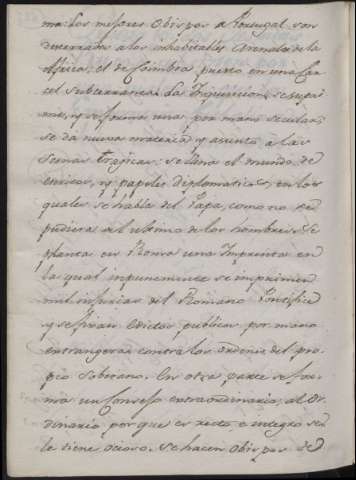 ma: Los mejores Obispos de Portugal son
desterrados a los inhabitables Arenales de la
Africa, el de Coimbra puesto en una Car
cel subterranea. La Inquisicion se supri
me, y se forma una por mano secular;
se da nueva materia y asunto a las
Scenas tragicas: se llena el mundo de
emisos, y papeles diplomaticos, en los
quales se habla del Papa, como no se
pudiera del ultimo de los hombres. Se
planta en Roma una Imprenta en
la qual impunemente se imprimen
mil injurias del Romano Pontifice
y se fixan edictos publicos por mano
extrangera contra las ordenes del pro-
pio Soberano. En otra parte se for-
ma un Consejo extraordinario, al Or-
dinario por que es recto e integro se
le tiene ocioso. Se hacen Obispos de